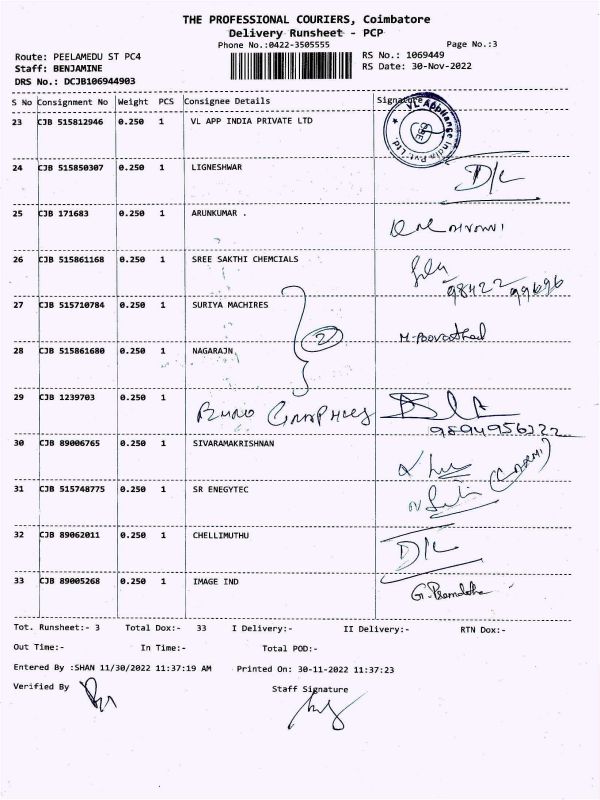 THE PROFESSIONAL COURIERS, Coimbatore
Delivery Runsheet - PCP
Phone No.:0422-3505555 Page No.:3
Route: PEELAMEDU ST PC4 RS No.: 1069449
Staff: BENJAMINE RS Date: 30-Nov-2022
DRS No.: DCJB106944903
S No Consignment No Weight PCS Consignee Details Signature
23 CJB 515812946 0.250 1 VL APP INDIA PRIVATE LTD
24 CJB 515850307 0.250 1 LIGNESHWAR D/L
25 CJB 171683 0.250 1 ARUNKUMAR .
26 CJB 515861168 0.250 1 SREE SAKTHI CHEMCIALS
98422 99696
27 CJB 515710784 0.250 1 SURIYA MACHIRES
2
28 CJB 515861680 0.250 1 NAGARAJN
29 CJB 1239703 0.250 1
9894956322
30 CJB 89006765 0.250 1 SIVARAMAKRISHNAN
31 CJB 515748775 0.250 1 SR ENEGYTEC
32 CJB 89062011 0.250 1 CHELLIMUTHU D/L
33 CJB 89005268 0.250 1 IMAGE IND
Tot. Runsheet:- 3 Total Dox:- 33 I Delivery:- II Delivery:- RTN Dox:-
Out Time:- In Time:- Total POD:-
Entered By :SHAN 11/30/2022 11:37:19 AM Printed On: 30-11-2022 11:37:23
Verified By Staff Signature